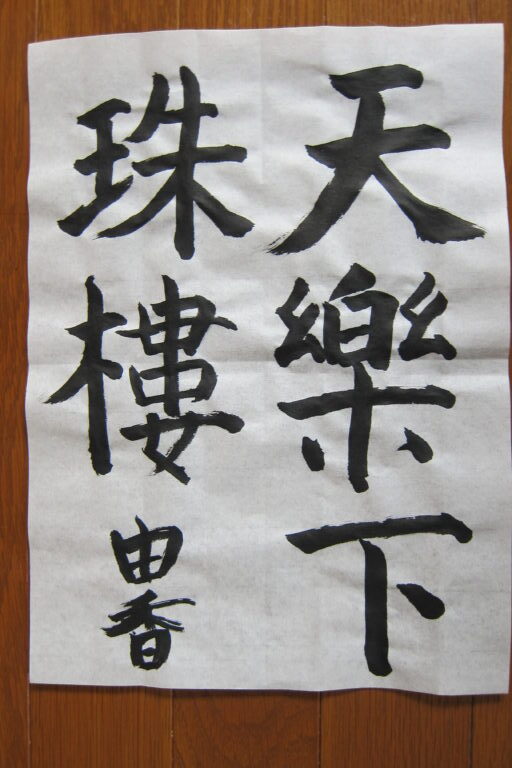 天樂下
珠樓
由香